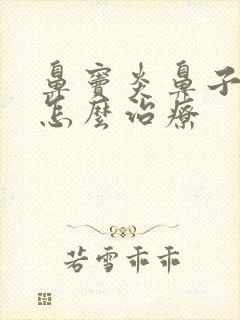 鼻窦炎鼻子
怎麼治疗
若雪乖乖